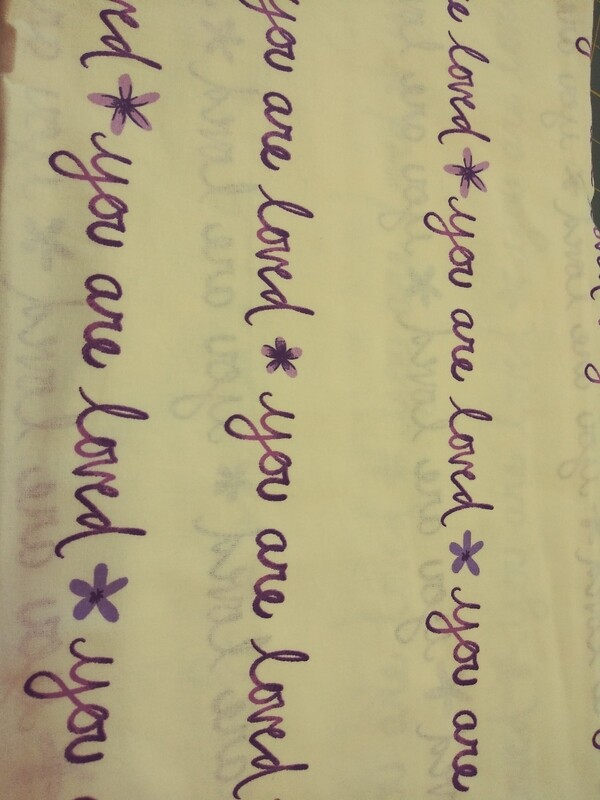 e loved * you are loved * you are
you are loved * you are loved
ved * you are loved * you